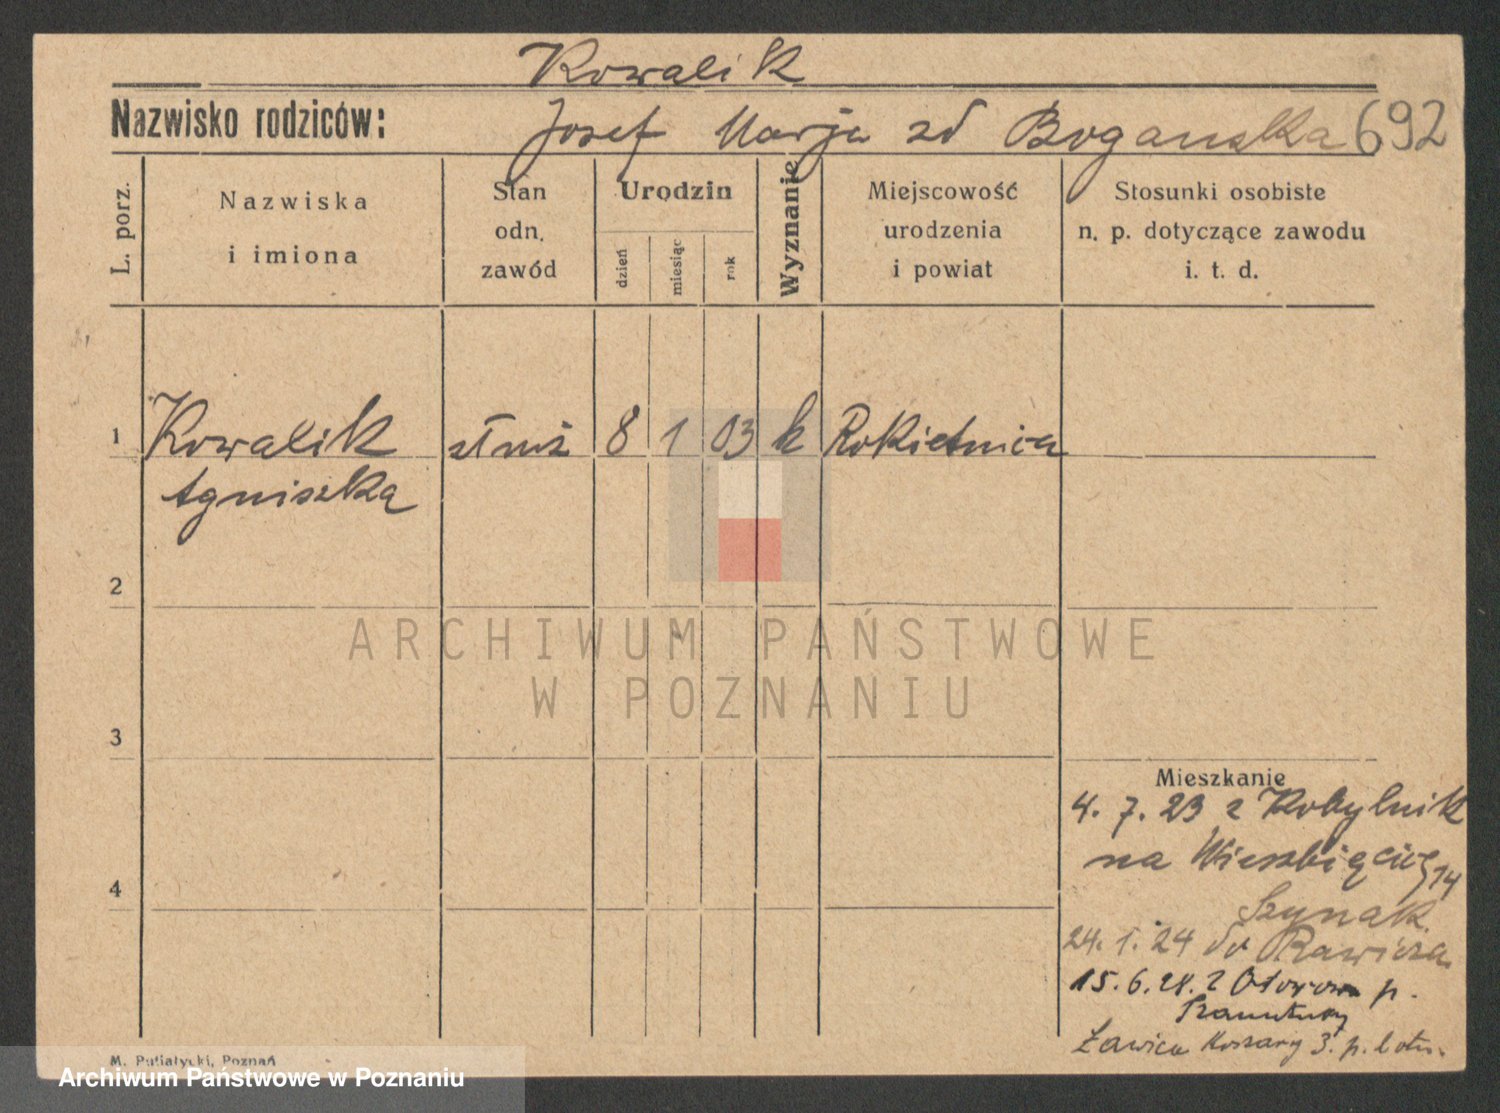 Kowalik
Nazwisko rodziców: Josef Marja zd Boganska 692
L. porz.
Nazwiska
i imiona
Stan
odn.
zawód
Urodzin
dzień
miesiąc
rok
Wyznanie
Miejscowość
urodzenia
i powiat
Stosunki osobiste
n. p. dotyczące zawodu
i. t. d.
1 Kowalik służ 8 1 03 k Rokietnica
Agniszka
2
ARCHIWUM PAŃSTWOWE
W POZNANIU
3
Mieszkanie
4. 7. 23 z Kobylnik
na Wieszbięcice 14
4
Szynak
24. 1. 24 do Rawicza
15. 6. 28. z Otorowa p.
Szamotuły
Ławica Koszary 3. p. lotn.
M. Putiatycki, Poznań
Archiwum Państwowe w Poznaniu